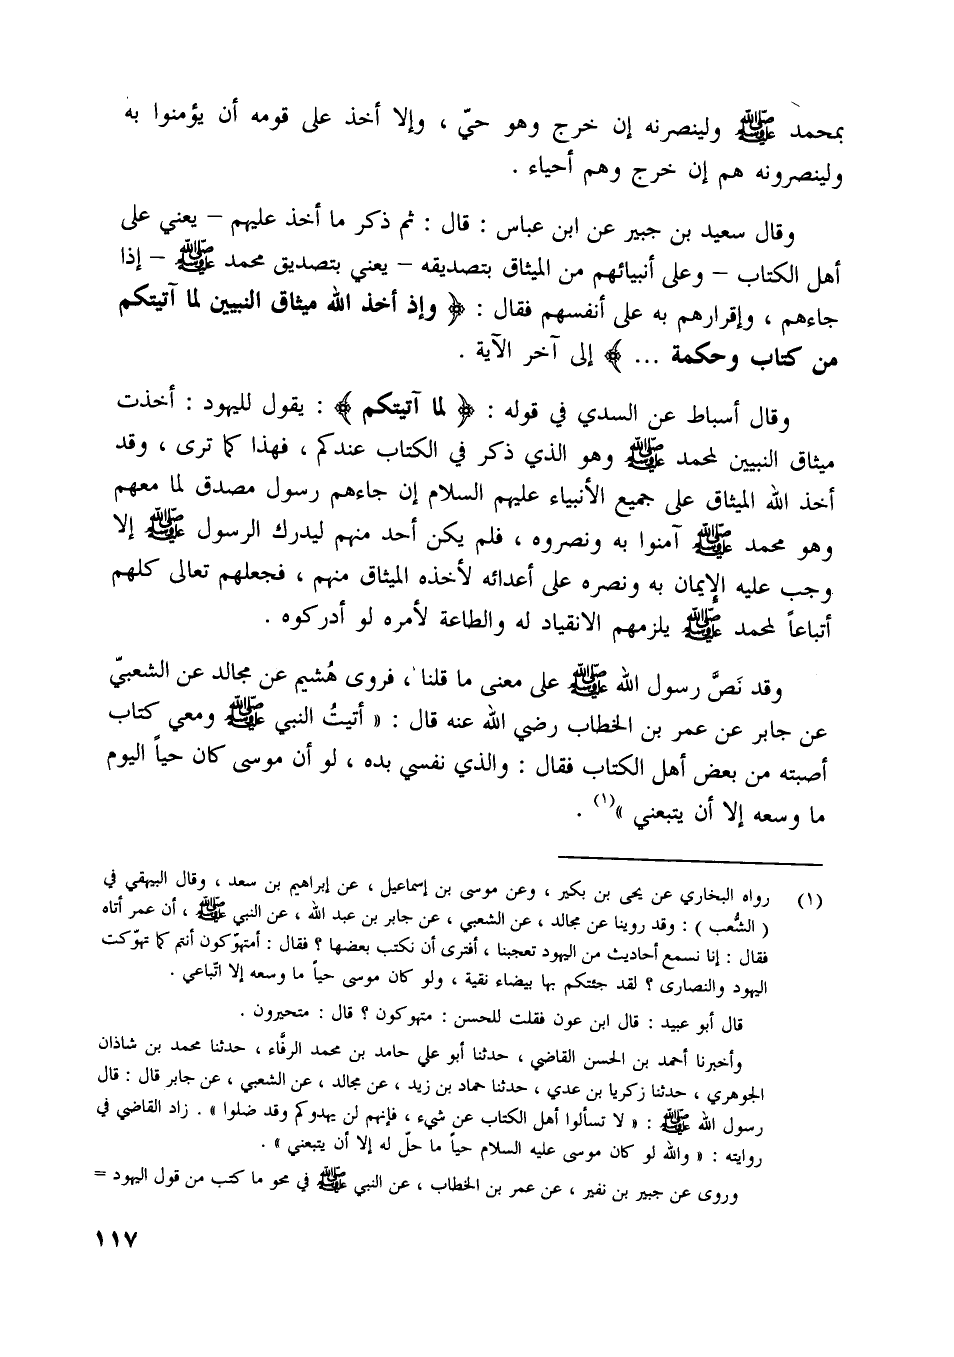 بمحمد ﷺ ولينصرنه إن خرج وهو حيّ ، وإلا أخذ على قومه أن يؤمنوا به
ولينصرونه هم إن خرج وهم أحياء .
وقال سعيد بن جبير عن ابن عباس : قال : ثم ذكر ما أخذ عليهم – يعني على
أهل الكتاب – وعلى أنبيائهم من الميثاق بتصديقه – يعني بتصديق محمد ﷺ – إذا
جاءهم ، وإقرارهم به على أنفسهم فقال : ﴿ وإذ أخذ الله ميثاق النبيين لما آتيتكم
من كتاب وحكمة ... ﴾ إلى آخر الآية .
وقال أسباط عن السدي في قوله : ﴿ لما آتيتكم ﴾ : يقول لليهود : أخذت
ميثاق النبيين لمحمد ﷺ وهو الذي ذكر في الكتاب عندكم ، فهذا كما ترى ، وقد
أخذ الله الميثاق على جميع الأنبياء عليهم السلام إن جاءهم رسول مصدق لما معهم
وهو محمد ﷺ آمنوا به ونصروه ، فلم يكن أحد منهم ليدرك الرسول ﷺ إلا
وجب عليه الإيمان به ونصره على أعدائه لأخذه الميثاق منهم ، فجعلهم تعالى كلهم
أتباعاً لمحمد ﷺ يلزمهم الانقياد له والطاعة لأمره لو أدركوه .
وقد نَصَّ رسول الله ﷺ على معنى ما قلنا ، فروى هُشيم عن مجالد عن الشعبيّ
عن جابر عن عمر بن الخطاب رضي الله عنه قال : « أتيتُ النبي ﷺ ومعي كتاب
أصبته من بعض أهل الكتاب فقال : والذي نفسي بده ، لو أن موسى كان حياً اليوم
ما وسعه إلا أن يتبعني »(١) .
(١) رواه البخاري عن يحيى بن بكير ، وعن موسى بن إسماعيل ، عن إبراهيم بن سعد ، وقال البيهقي في
( الشُّعب ) : وقد روينا عن مجالد ، عن الشعبي ، عن جابر بن عبد الله ، عن النبي ﷺ ، أن عمر أتاه
فقال : إنا نسمع أحاديث من اليهود تعجبنا ، أفترى أن نكتب بعضها ؟ فقال : أمتهوّكون أنتم كما تهوّكت
اليهود والنصارى ؟ لقد جئتكم بها بيضاء نقية ، ولو كان موسى حياً ما وسعه إلا اتّباعي .
قال أبو عبيد : قال ابن عون فقلت للحسن : متهوكون ؟ قال : متحيرون .
وأخبرنا أحمد بن الحسن القاضي ، حدثنا أبو علي حامد بن محمد الرفَّاء ، حدثنا محمد بن شاذان
الجوهري ، حدثنا زكريا بن عدي ، حدثنا حماد بن زيد ، عن مجالد ، عن الشعبي ، عن جابر قال : قال
رسول الله ﷺ : « لا تسألوا أهل الكتاب عن شيء ، فإنهم لن يهدوكم وقد ضلوا » . زاد القاضي في
روايته : « والله لو كان موسى عليه السلام حياً ما حلّ له إلا أن يتبعني » .
وروى عن جبير بن نفير ، عن عمر بن الخطاب ، عن النبي ﷺ في محو ما كتب من قول اليهود =
١١٧